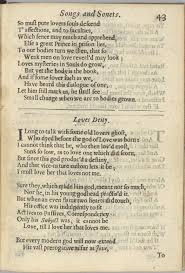 Songs and Sonets. 43
So must pure lovers soules descend
T'affections, and to faculties,
Which sense may reach and apprehend,
Else a great Prince in prison lies,
To our bodies turn we then, that so
Weak men on love reveal'd may look;
Loves mysteries in Souls do grow,
But yet the body is the book,
And if some lover such as we,
Have heard this dialogue of one,
Let him still mark us, he shall see
Small change when we are to bodies grown.
Loves Deity.
I Long to talk with some old lovers ghost,
Who dyed before the god of Love was born:
I cannot think that he, who then lov'd most,
Sunk so low, as to love one which did scorn.
But since this god produc'd a destiny,
And that vice-nature custom lets it be;
I must love her that loves not me.
Sure they, which made him god, meant not so much,
Nor he, in his young godhead practis'd it.
But when an even flame two hearts did touch,
His office was indulgently to fit
Actives to Passives, Correspondency
Only his Subject was; it cannot be
Love, till I love her that loves me.
But every modern god will now extend
His vast prerogative as far as Jove,
To